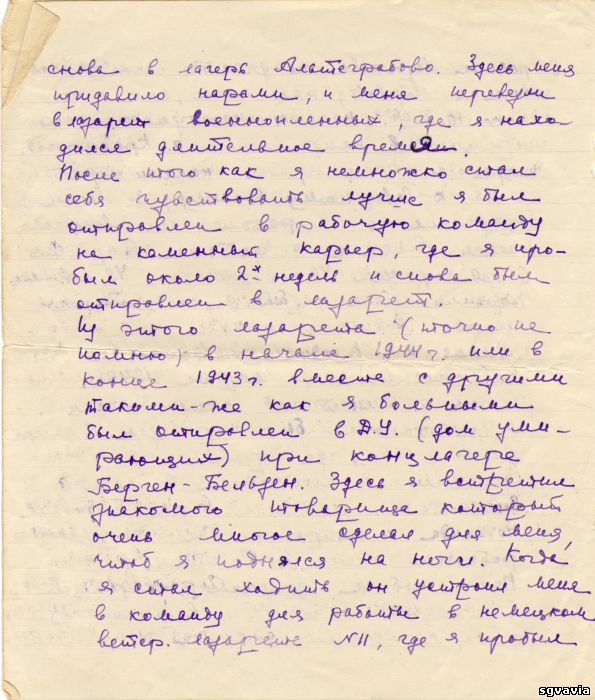 снова в лагерь Альтеграбово. Здесь меня
придавило нарами, и меня перевели
в лазарет военнопленных, где я нахо
дился длительное время.
После этого как я немножко стал
себя чувствовать лучше я был
отправлен в рабочую команду
на каменный карьер, где я про-
был около 2х недель и снова был
отправлен в лазарет.
Из этого лазарета (точно не
помню) в начале 1944 г или в
конце 1943 г. вместе с другими
такими-же как я больными
был отправлен в Д.У. (дом уми-
рающих) при концлагере
Берген-Бельзен. Здесь я встретил
знакомого товарища который
очень многое сделал для меня,
чтоб я поднялся на ноги. Когда
я стал ходить он устроил меня
в команду для работы в немецком
ветер. лазарете N II, где я пробыл
sgvavia